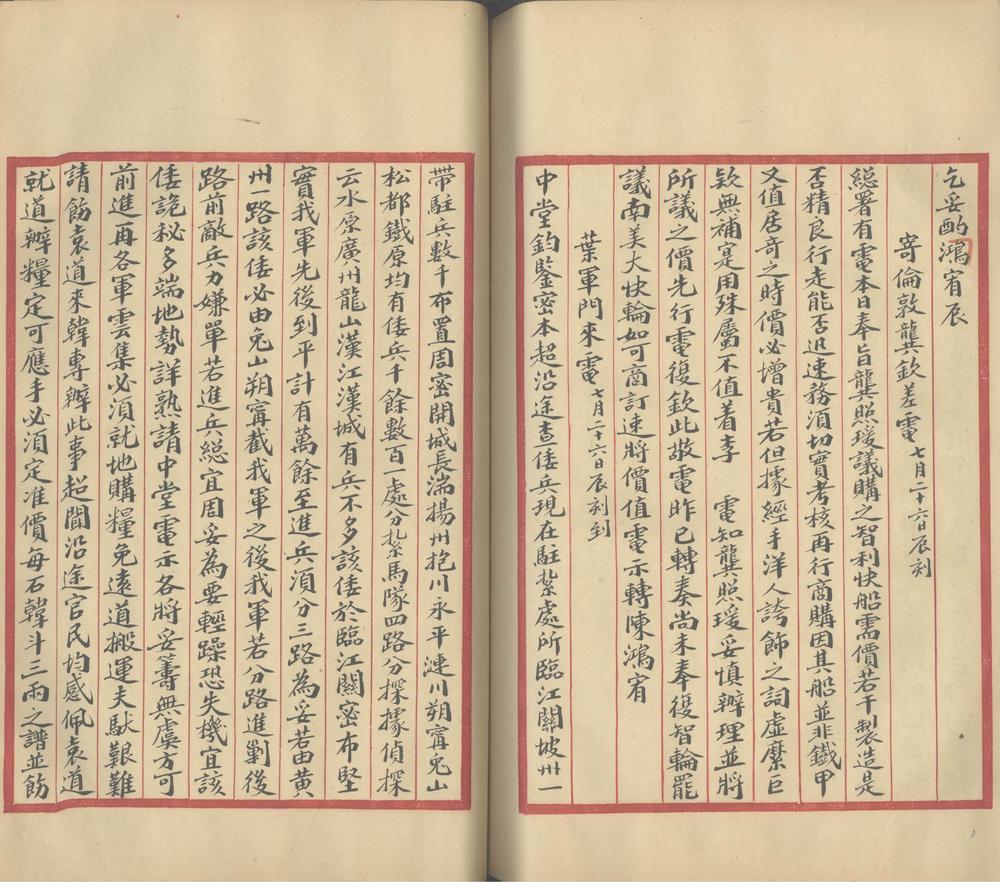 乞妥酌鴻宥辰
寄倫敦龔欽差電七月二十六日辰刻
總署有電本日奉旨龔照瑗議購之智利快船需價若干製造是
否精良行走能否迅速務須切實考核再行商購因其船並非鐵甲
又值居奇之時價必增貴若但據經手洋人誇飾之詞虛縻巨
欵無補寔用殊屬不值着李 電知龔照瑗妥慎辦理並將
所議之價先行電復欽此敬電昨已轉奏尚未奉復智輪罷
議南美大快輪如可商訂速將價值電示轉陳鴻宥
葉軍門來電七月二十六日辰刻到
中堂鈞鑒密本超沿途查倭兵現在駐紮處所臨江關坡州一
帶駐兵數千布置周密開城長湍揚州抱川永平漣川朔甯兔山
松都鐵原均有倭兵千餘數百一處分紮馬隊四路分探據偵探
云水原廣州龍山漢江漢城有兵不多該倭於臨江關密布堅
實我軍先後到平計有萬餘至進兵須分三路為妥若由黃
州一路該倭必由兔山朔甯截我軍之後我軍若分路進剿後
路前敵兵力嫌單若進兵總宜周妥為要輕躁恐失機宜該
倭詭秘多端地勢詳熟請中堂電示各將妥籌無虞方可
前進再各軍雲集必須就地購糧免遠道搬運夫馱艱難
請飭袁道來韓專辦此事超聞沿途官民均感佩袁道
就道辦糧定可應手必須定准價每石韓斗三兩之譜並飭